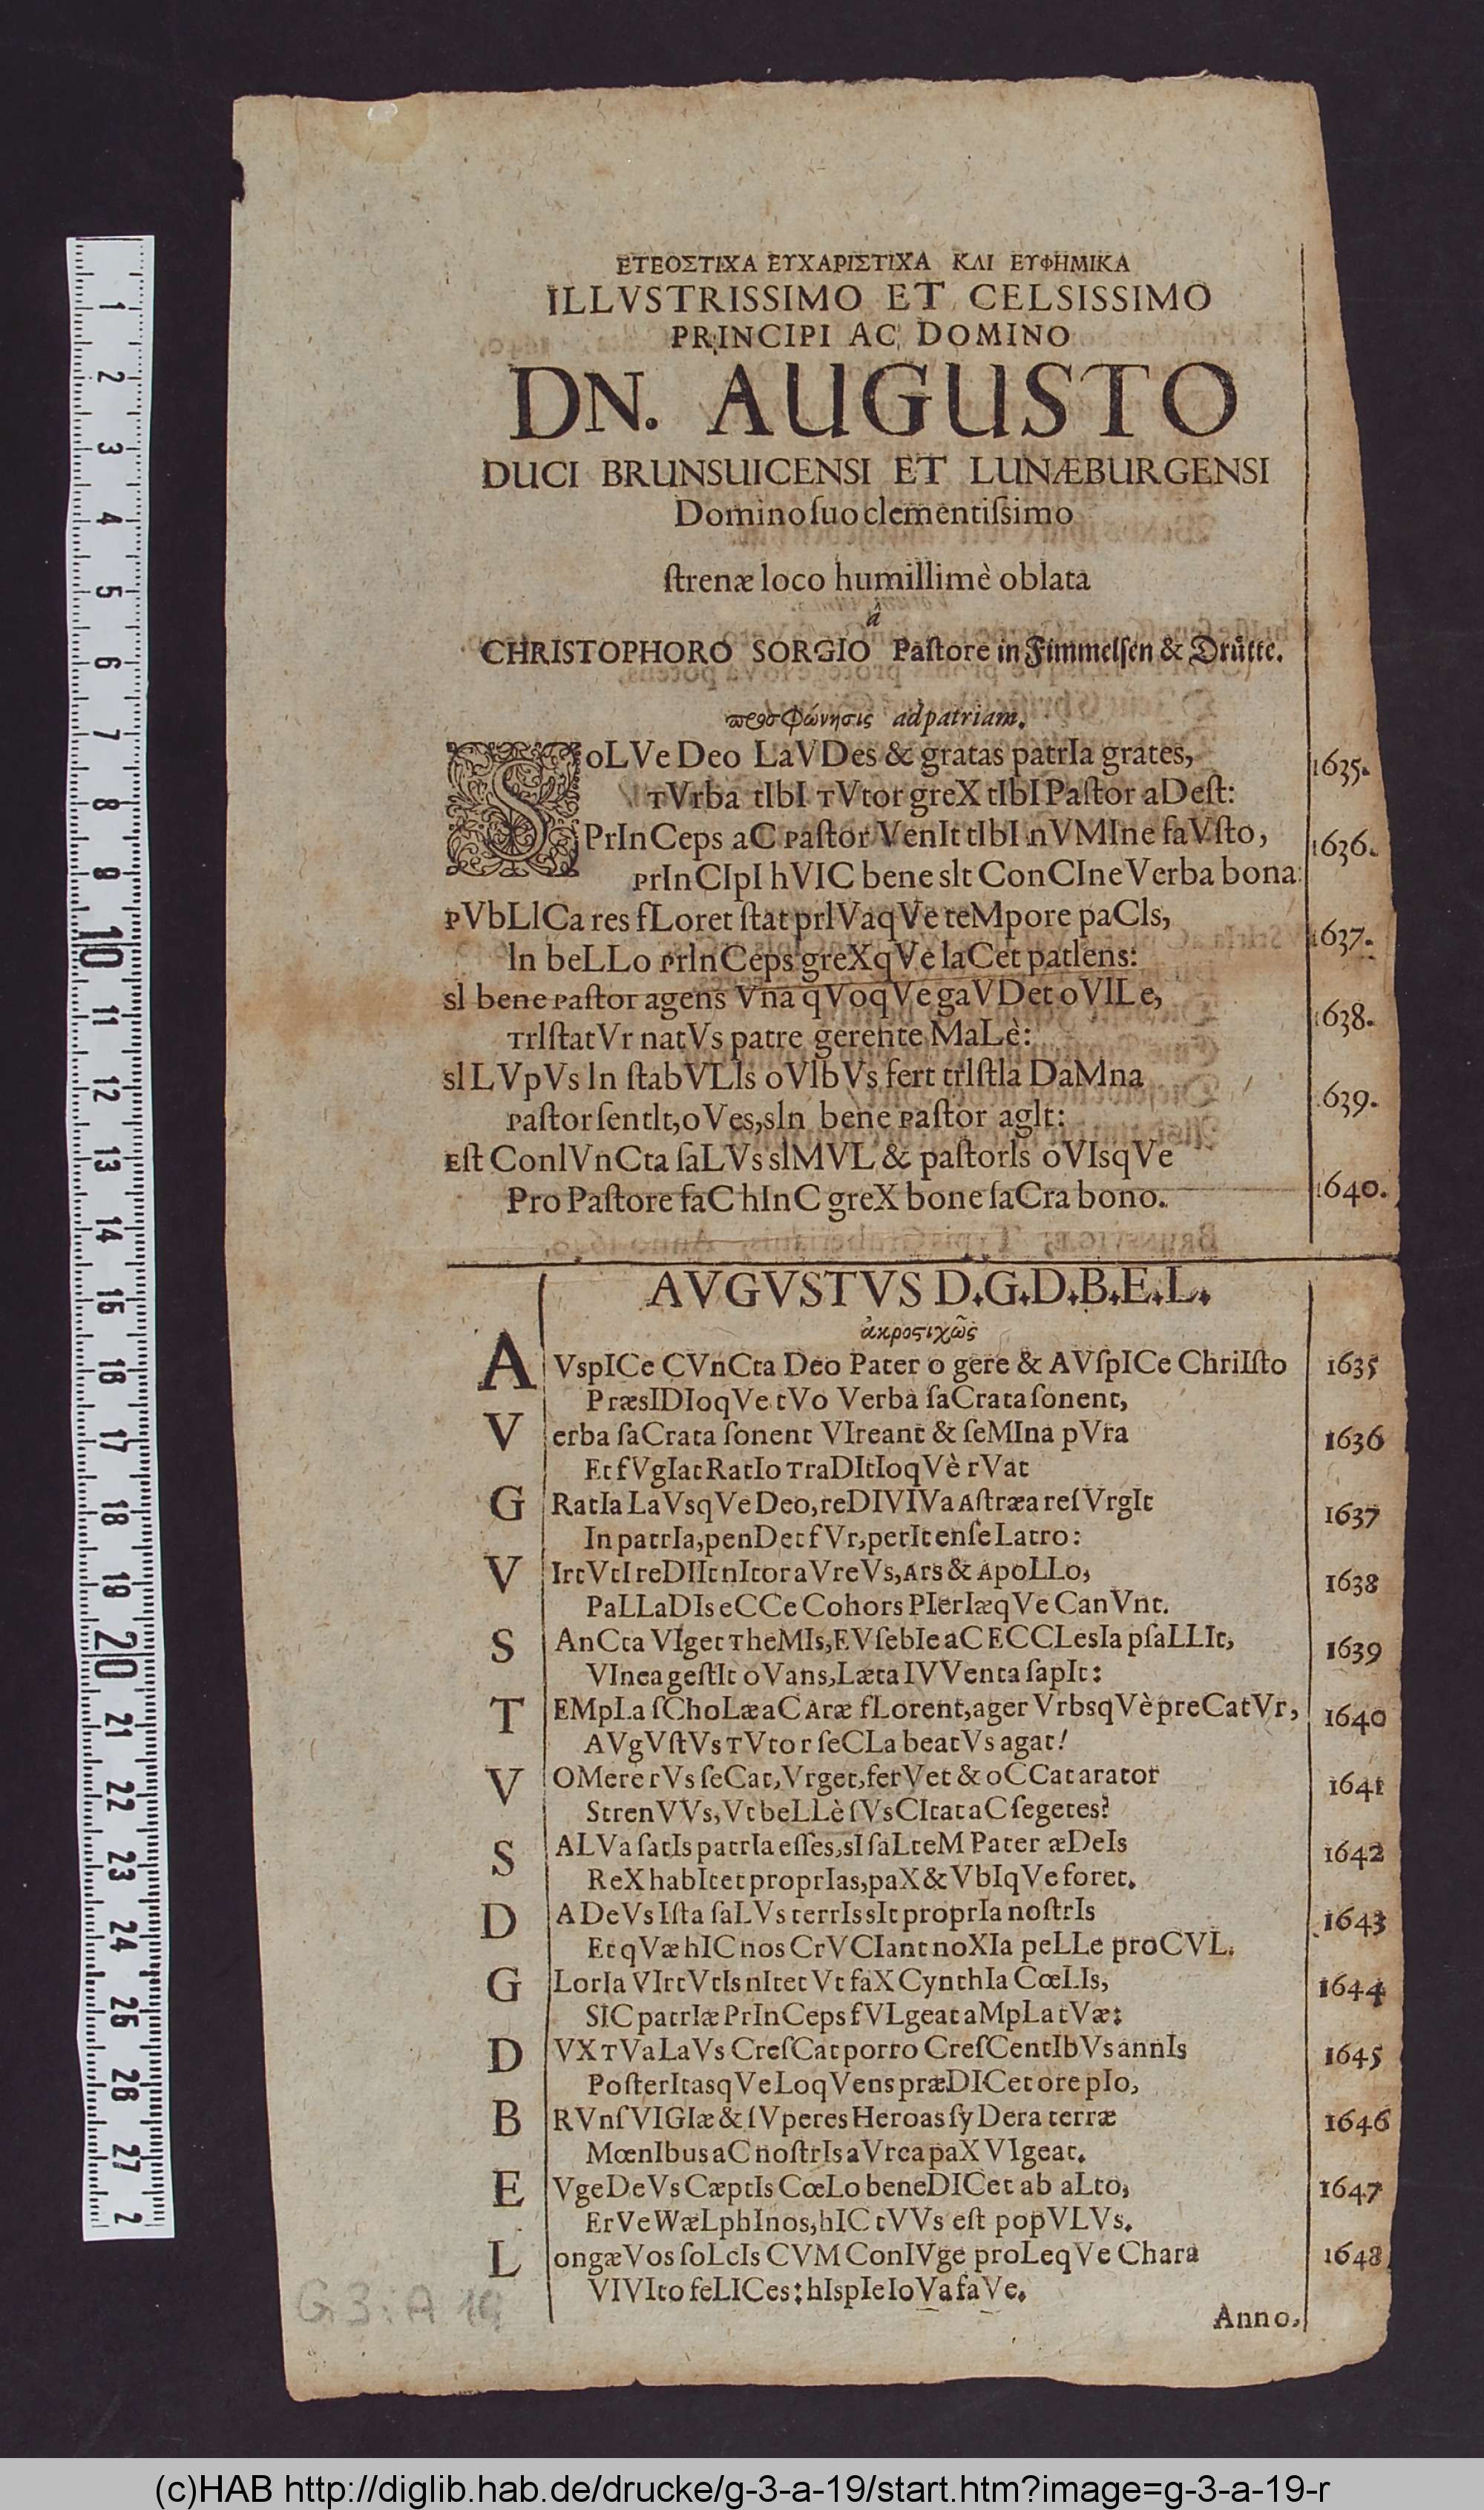 ΕΤΕΟΣΤΙΧΑ ΕΥΧΑΡΙΣΤΙΧΑ ΚΑΙ ΕΥΦΗΜΙΚΑ
ILLVSTRISSIMO ET CELSISSIMO
PRINCIPI AC DOMINO
DN. AUGUSTO
DUCI BRUNSUICENSI ET LUNÆBURGENSI
Domino ſuo clementiſsimo
ſtrenæ loco humillimè oblata
â
CHRISTOPHORO SORGIO Paſtore in Fimmelſen & Drůtte.
προσφώνησις ad patriam.
SoLVe Deo LaVDes & gratas patrIa grates, 1635.
TVrba tIbI TVtor greX tIbI Paſtor aDeſt:
PrInCeps aC Paſtor VenIt tIbI nVMIne faVſto, 1636.
PrInCIpI hVIC bene sIt ConCIne Verba bona:
PVbLICa res fLoret ſtat prIVaqVe teMpore paCIs, 1637.
In beLLo PrInCeps greXqVe IaCet patIens:
sI bene Paſtor agens Vna qVoqVe gaVDet oVILe, 1638.
TrIſtatVr natVs patre gerente MaLè:
sI LVpVs In ſtabVLIs oVIbVs fert trIſtIa DaMna 1639.
Paſtor ſentIt, oVes, sIn bene Paſtor agIt:
Eſt ConIVnCta ſaLVs sIMVL & paſtorIs oVIsqVe 1640.
Pro Paſtore faC hInC greX bone ſaCra bono.
AVGVSTVS D.G.D.B.E.L.
ἀκροστιχῶς
A VspICe CVnCta Deo Pater o gere & AVſpICe ChriIſto 1635
PræsIDIoqVe tVo Verba ſaCrata ſonent,
V erba ſaCrata ſonent VIreant & ſeMIna pVra 1636
Et fVgIat RatIo TraDItIoqVè rVat
G RatIa LaVsqVe Deo, reDIVIVa Aſtræa reſVrgIt 1637
In patrIa, penDet fVr, perIt enſe Latro:
V IrtVtI reDIIt nItor aVreVs, Ars & ApoLLo, 1638
PaLLaDIs eCCe Cohors PIerIæqVe CanVnt.
S AnCta VIget TheMIs, EVſebIe aC ECCLesIa pſaLLIt, 1639
VInea geſtIt oVans, Læta IVVenta ſapIt:
T EMpLa ſChoLæ aC Aræ fLorent, ager VrbsqVè preCatVr, 1640
AVgVſtVs TVtor ſeCLa beatVs agat!
V OMere rVs ſeCat, Vrget, ferVet & oCCat arator 1641
StrenVVs, Vt beLLè ſVsCItat aC ſegetes?
S ALVa ſatIs patrIa eſſes, sI ſaLteM Pater æDeIs 1642
ReX habItet proprIas, paX & VbIqVe foret.
D A DeVs Iſta ſaLVs terrIs sIt proprIa noſtrIs 1643
Et qVæ hIC nos CrVCIant noXIa peLLe proCVL.
G LorIa VIrtVtIs nItet Vt faX CynthIa CœLIs, 1644
SIC patrIæ PrInCeps fVLgeat aMpLa tVæ:
D VX TVa LaVs CreſCat porro CreſCentIbVs annIs 1645
PoſterItasqVe LoqVens præDICet ore pIo,
B RVnſVIGIæ & ſVperes Heroas ſyDera terræ 1646
MœnIbus aC noſtrIs aVrea paX VIgeat.
E VgeDeVs CæptIs CœLo beneDICet ab aLto, 1647
ErVe WæLphInos, hIC tVVs eſt popVLVs.
L ongæVos ſoLcIs CVM ConIVge proLeqVe Chara 1648
VIVIto feLICes: hIspIe IoVa faVe.
Anno.
G 3 : A 19
(c)HAB http://diglib.hab.de/drucke/g-3-a-19/start.htm?image=g-3-a-19-r